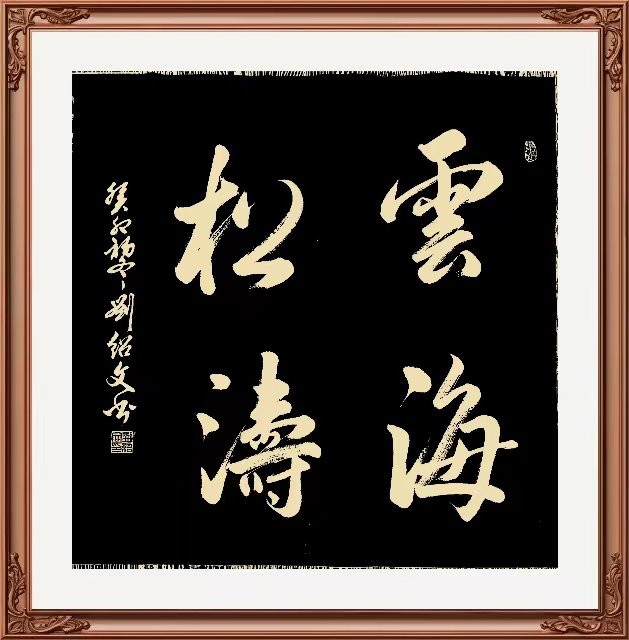 雲海
松濤
癸卯初冬劉紹文書